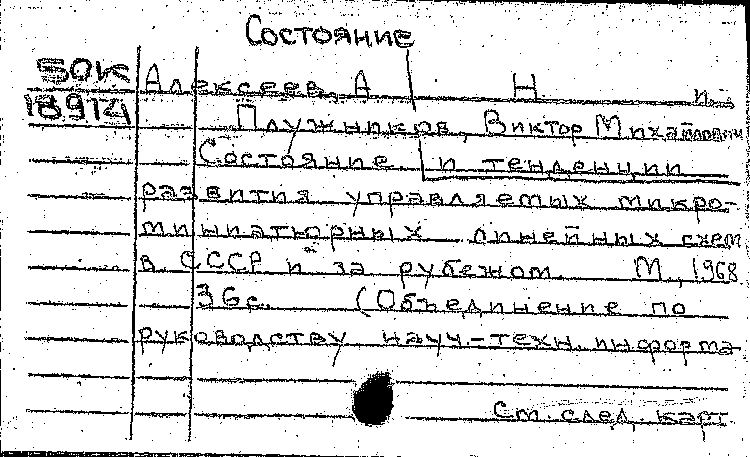 Состояние
50К Алексеев, А Н и
18914 Плужников, Виктор Михайлович
Состояние и тенденции
развития управляемых микро-
миниатюрных линейных схем
в СССР и за рубежом. М., 1968
36с. (Объединение по
руководству науч-техн. информа-
См. след. карт